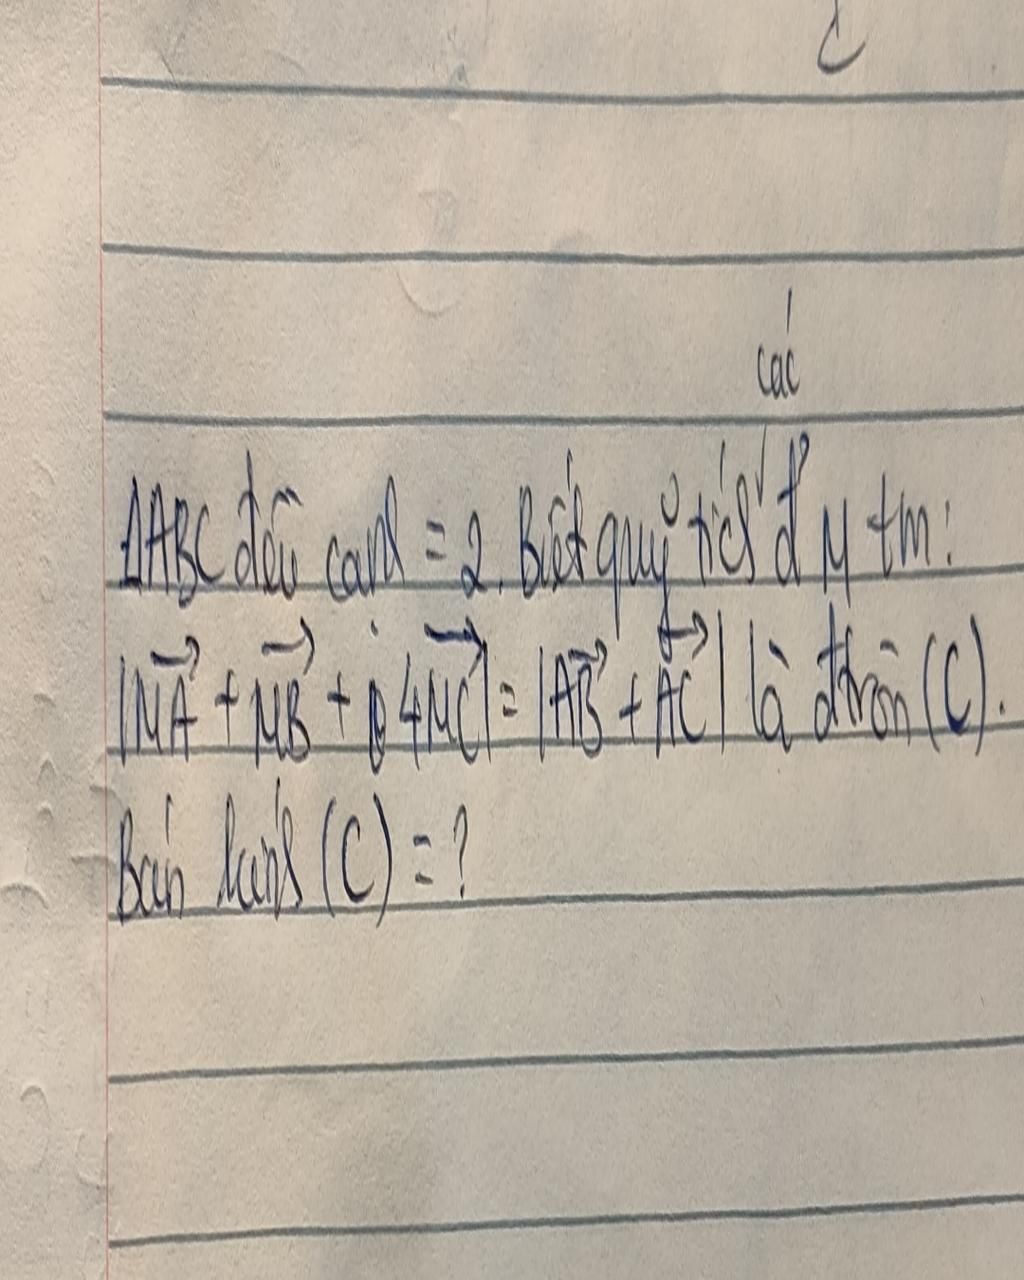 các
ΔABC đều cạnh = 2. Biết quỹ tích đ' M tm:
|MA + MB + 4MC| = |AB + AC| là đtròn (C).
Bán kính (C) = ?